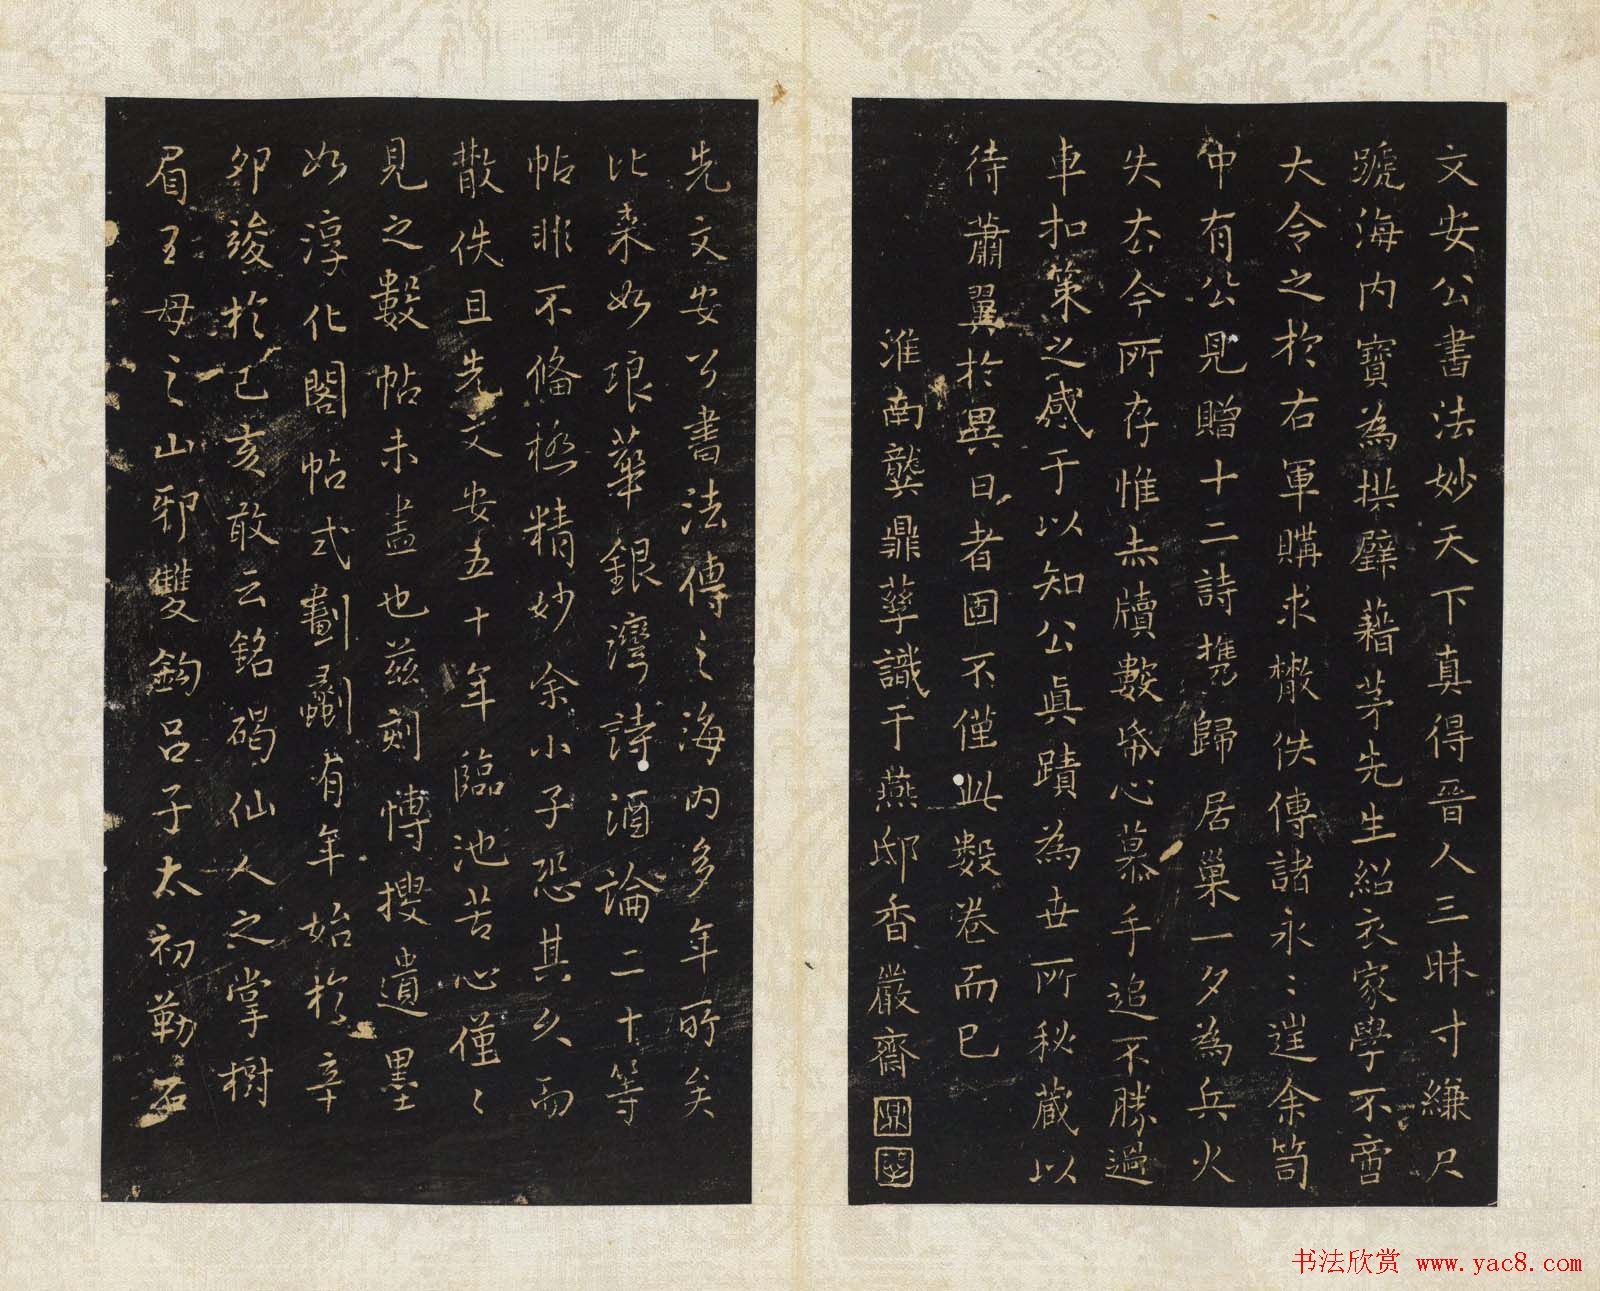 文安公書法妙天下真得晉人三昧寸縑尺
蹏海内寶為拱璧藉茅先生紹衣家學不啻
大令之於右軍購求散佚傳諸永〻逞余笥
中有公見贈十二詩携歸居巢一夕為兵火
失去今所存惟赤牘數帋心慕手追不勝過
車扣策之感于以知公真蹟為世所秘蔵以
待蕭翼於異日者固不僅此數卷而已
淮南龔鼎孳識于燕邸香嚴齋
先文安公書法傳之海内多年所矣
比来如琅華銀灣詩酒論二十等
帖非不俻極精妙余小子恐其久而
散佚且先文安五十年臨池苦心僅〻
見之數帖未盡也兹刻慱搜遺墨
如淳化閣帖式劃劙有年始於辛
卯竣於己亥敢云銘碣仙人之掌樹
眉王母之山邪雙鈎吕子太初勒石
书法欣赏 www.yac8.com